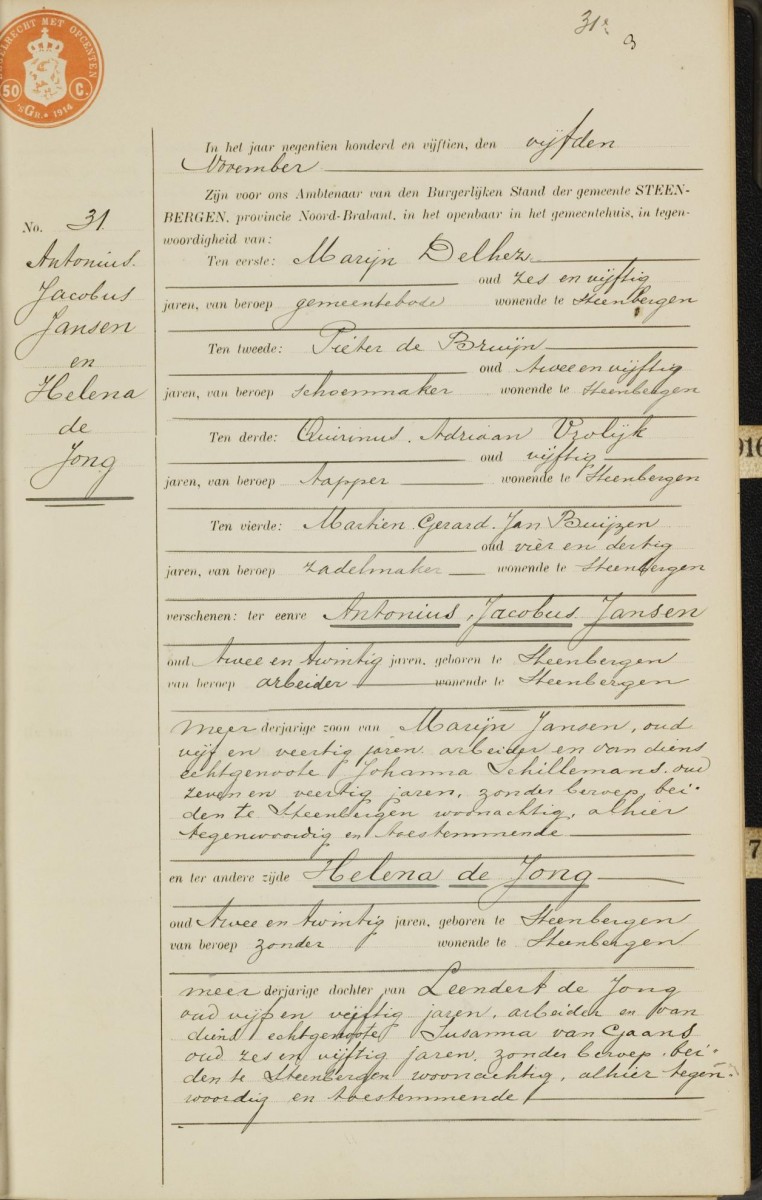 31e
3
ZEGELRECHT MET OPCENTEN
50 C.
'sGR. 1914
In het jaar negentien honderd en vijftien, den vijfden
November
Zijn voor ons Ambtenaar van den Burgerlijken Stand der gemeente STEEN-
BERGEN, provincie Noord-Brabant, in het openbaar in het gemeentehuis, in tegen-
woordigheid van:
No. 31
Antonius
Jacobus
Jansen
en
Helena
de
Jong
Ten eerste: Marijn Delhez
oud zes en vijftig
jaren, van beroep gemeentebode wonende te Steenbergen
Ten tweede: Pieter de Bruijn
oud twee en vijftig
jaren, van beroep schoenmaker wonende te Steenbergen
Ten derde: Quirinus Adriaan Vrolijk
oud vijftig
jaren, van beroep tapper wonende te Steenbergen
Ten vierde: Martien Gerard Jan Buijzen
oud vier en dertig
jaren, van beroep zadelmaker wonende te Steenbergen
verschenen: ter eenre Antonius, Jacobus Jansen
oud twee en twintig jaren, geboren te Steenbergen
van beroep arbeider wonende te Steenbergen
meerderjarige zoon van Marijn Jansen, oud
vijf en veertig jaren arbeider en van diens
echtgenoote Johanna Schillemans, oud
zeven en veertig jaren, zonder beroep, bei-
den te Steenbergen woonachtig, alhier
tegenwoordig en toestemmende
en ter andere zijde Helena de Jong
oud twee en twintig jaren, geboren te Steenbergen
van beroep zonder wonende te Steenbergen
meerderjarige dochter van Leendert de Jong
oud vijf en vijftig jaren, arbeider en van
diens echtgenoote Susanna van Gaans
oud zes en vijftig jaren, zonder beroep, bei-
den te Steenbergen woonachtig, alhier tegen-
woordig en toestemmende
916
7